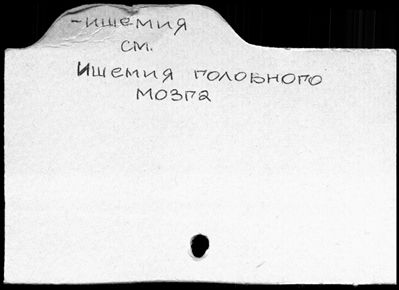 -ишемия
см.
Ишемия головного
мозга